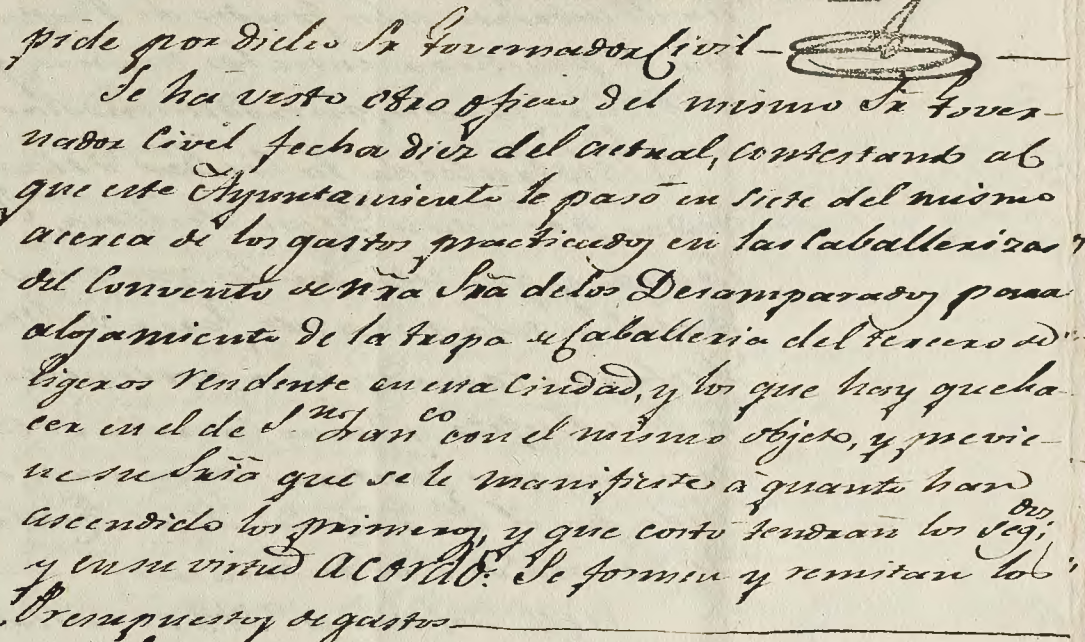 pide por dicho Sr Governador Civil
Se ha visto otro oficio del mismo Sr Gover-
nador Civil fecha diez del actual, contestando al
que este Ayuntamiento le pasó en siete del mismo
acerca de los gastos practicados en las Caballerizas
del Convento de Nrã Srã de los Desamparados para
alojamiento de la tropa de Caballeria del tercero de
ligeros residente en esta Ciudad, y los que hay que ha-
cer en el de Sn Franco con el mismo objeto, y previe-
ne su Sriã que se le manifieste à quanto han
ascendido los primeros, y que costo tendran los segdos;
y en su virtud ACORDÓ: Se formen y remitan los
Presupuestos de gastos